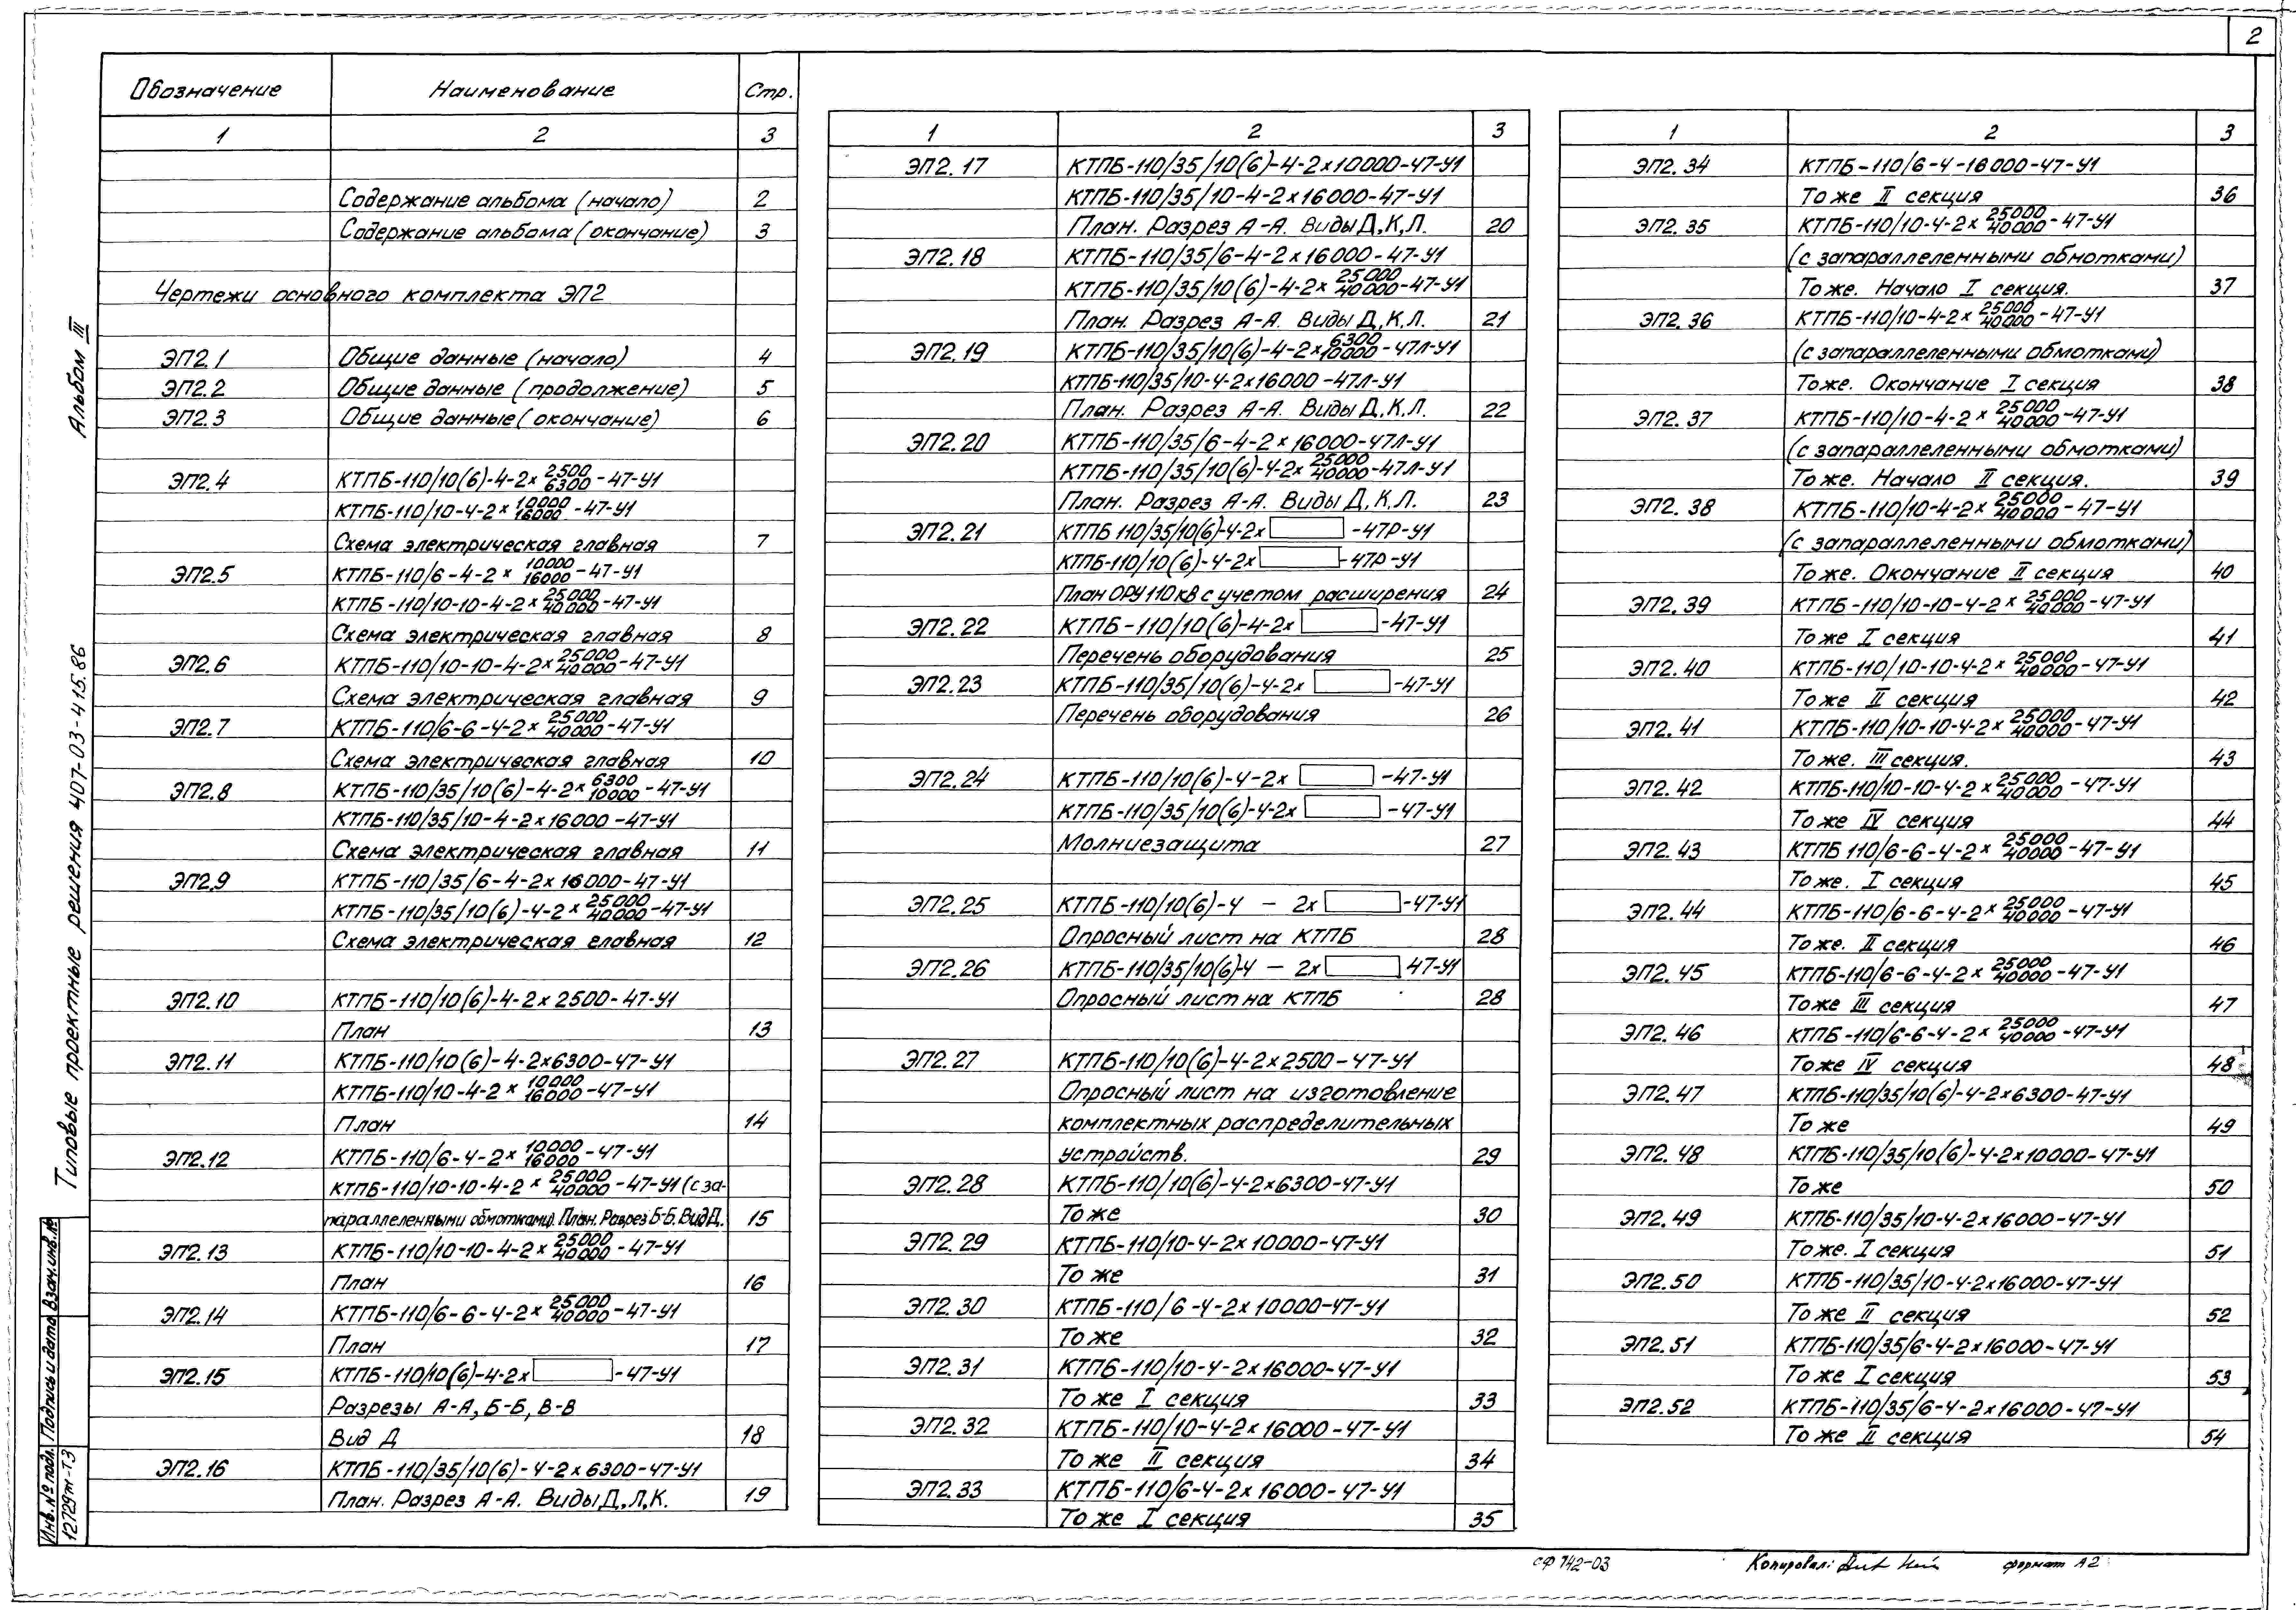 2
Обозначение Наименование Стр.
1 2 3
Содержание альбома (начало) 2
Содержание альбома (окончание) 3
Чертежи основного комплекта ЭП2
ЭП2.1 Общие данные (начало) 4
ЭП2.2 Общие данные (продолжение) 5
ЭП2.3 Общие данные (окончание) 6
ЭП2.4 КТПБ-110/10(6)-4-2х 2500/6300 -47-У1
КТПБ-110/10-4-2х 10000/16000 -47-У1
Схема электрическая главная 7
ЭП2.5 КТПБ-110/6-4-2х 10000/16000 -47-У1
КТПБ-110/10-10-4-2х 25000/40000 -47-У1
Схема электрическая главная 8
ЭП2.6 КТПБ-110/10-10-4-2х 25000/40000 -47-У1
Схема электрическая главная 9
ЭП2.7 КТПБ-110/6-6-4-2х 25000/40000 -47-У1
Схема электрическая главная 10
ЭП2.8 КТПБ-110/35/10(6)-4-2х 6300/10000 -47-У1
КТПБ-110/35/10-4-2х16000-47-У1
Схема электрическая главная 11
ЭП2.9 КТПБ-110/35/6-4-2х16000-47-У1
КТПБ-110/35/10(6)-4-2х 25000/40000 -47-У1
Схема электрическая главная 12
ЭП2.10 КТПБ-110/10(6)-4-2х2500-47-У1
План 13
ЭП2.11 КТПБ-110/10(6)-4-2х6300-47-У1
КТПБ-110/10-4-2х 10000/16000 -47-У1
План 14
ЭП2.12 КТПБ-110/6-4-2х 10000/16000 -47-У1
КТПБ-110/10-10-4-2х 25000/40000 -47-У1 (с за-
параллеленными обмотками). План. Разрез Б-Б. Вид Д. 15
ЭП2.13 КТПБ-110/10-10-4-2х 25000/40000 -47-У1
План 16
ЭП2.14 КТПБ-110/6-6-4-2х 25000/40000 -47-У1
План 17
ЭП2.15 КТПБ-110/10(6)-4-2х -47-У1
Разрезы А-А, Б-Б, В-В
Вид Д 18
ЭП2.16 КТПБ-110/35/10(6)-4-2х6300-47-У1
План. Разрез А-А. Виды Д,Л,К. 19
1 2 3
ЭП2.17 КТПБ-110/35/10(6)-4-2х10000-47-У1
КТПБ-110/35/10-4-2х16000-47-У1
План. Разрез А-А. Виды Д,К,Л. 20
ЭП2.18 КТПБ-110/35/6-4-2х16000-47-У1
КТПБ-110/35/10(6)-4-2х 25000/40000 -47-У1
План. Разрез А-А. Виды Д,К,Л. 21
ЭП2.19 КТПБ-110/35/10(6)-4-2х 6300/10000 -47Л-У1
КТПБ-110/35/10-4-2х16000-47Л-У1
План. Разрез А-А. Виды Д,К,Л. 22
ЭП2.20 КТПБ-110/35/6-4-2х16000-47Л-У1
КТПБ-110/35/10(6)-4-2х 25000/40000 -47Л-У1
План. Разрез А-А. Виды Д,К,Л. 23
ЭП2.21 КТПБ 110/35/10(6)-4-2х -47Р-У1
КТПБ-110/10(6)-4-2х -47Р-У1
План ОРУ 110 кВ с учетом расширения 24
ЭП2.22 КТПБ-110/10(6)-4-2х -47-У1
Перечень оборудования 25
ЭП2.23 КТПБ-110/35/10(6)-4-2х -47-У1
Перечень оборудования 26
ЭП2.24 КТПБ-110/10(6)-4-2х -47-У1
КТПБ-110/35/10(6)-4-2х -47-У1
Молниезащита 27
ЭП2.25 КТПБ-110/10(6)-4 - 2х -47-У1
Опросный лист на КТПБ 28
ЭП2.26 КТПБ-110/35/10(6)-4 - 2х 47-У1
Опросный лист на КТПБ 28
ЭП2.27 КТПБ-110/10(6)-4-2х2500-47-У1
Опросный лист на изготовление
комплектных распределительных
устройств. 29
ЭП2.28 КТПБ-110/10(6)-4-2х6300-47-У1
То же 30
ЭП2.29 КТПБ-110/10-4-2х10000-47-У1
То же 31
ЭП2.30 КТПБ-110/6-4-2х10000-47-У1
То же 32
ЭП2.31 КТПБ-110/10-4-2х16000-47-У1
То же I секция 33
ЭП2.32 КТПБ-110/10-4-2х16000-47-У1
То же II секция 34
ЭП2.33 КТПБ-110/6-4-2х16000-47-У1
То же I секция 35
1 2 3
ЭП2.34 КТПБ-110/6-4-16000-47-У1
То же II секция 36
ЭП2.35 КТПБ-110/10-4-2х 25000/40000 -47-У1
(с запараллеленными обмотками)
То же. Начало I секция. 37
ЭП2.36 КТПБ-110/10-4-2х 25000/40000 -47-У1
(с запараллеленными обмотками)
То же. Окончание I секция 38
ЭП2.37 КТПБ-110/10-4-2х 25000/40000 -47-У1
(с запараллеленными обмотками)
То же. Начало II секция. 39
ЭП2.38 КТПБ-110/10-4-2х 25000/40000 -47-У1
(с запараллеленными обмотками)
То же. Окончание II секция 40
ЭП2.39 КТПБ-110/10-10-4-2х 25000/40000 -47-У1
То же I секция 41
ЭП2.40 КТПБ-110/10-10-4-2х 25000/40000 -47-У1
То же II секция 42
ЭП2.41 КТПБ-110/10-10-4-2х 25000/40000 -47-У1
То же. III секция. 43
ЭП2.42 КТПБ-110/10-10-4-2х 25000/40000 -47-У1
То же IV секция 44
ЭП2.43 КТПБ 110/6-6-4-2х 25000/40000 -47-У1
То же. I секция 45
ЭП2.44 КТПБ-110/6-6-4-2х 25000/40000 -47-У1
То же. II секция 46
ЭП2.45 КТПБ-110/6-6-4-2х 25000/40000 -47-У1
То же III секция 47
ЭП2.46 КТПБ-110/6-6-4-2х 25000/40000 -47-У1
То же IV секция 48
ЭП2.47 КТПБ-110/35/10(6)-4-2х6300-47-У1
То же 49
ЭП2.48 КТПБ-110/35/10(6)-4-2х10000-47-У1
То же 50
ЭП2.49 КТПБ-110/35/10-4-2х16000-47-У1
То же. I секция 51
ЭП2.50 КТПБ-110/35/10-4-2х16000-47-У1
То же II секция 52
ЭП2.51 КТПБ-110/35/6-4-2х16000-47-У1
То же I секция 53
ЭП2.52 КТПБ-110/35/6-4-2х16000-47-У1
То же II секция 54
Альбом III
Типовые проектные решения 407-03-415.86
Взам.инв.№
Подпись и дата
Инв.№ подл.
12729тм-Т3
СФ 742-03
Копировал:
формат А2